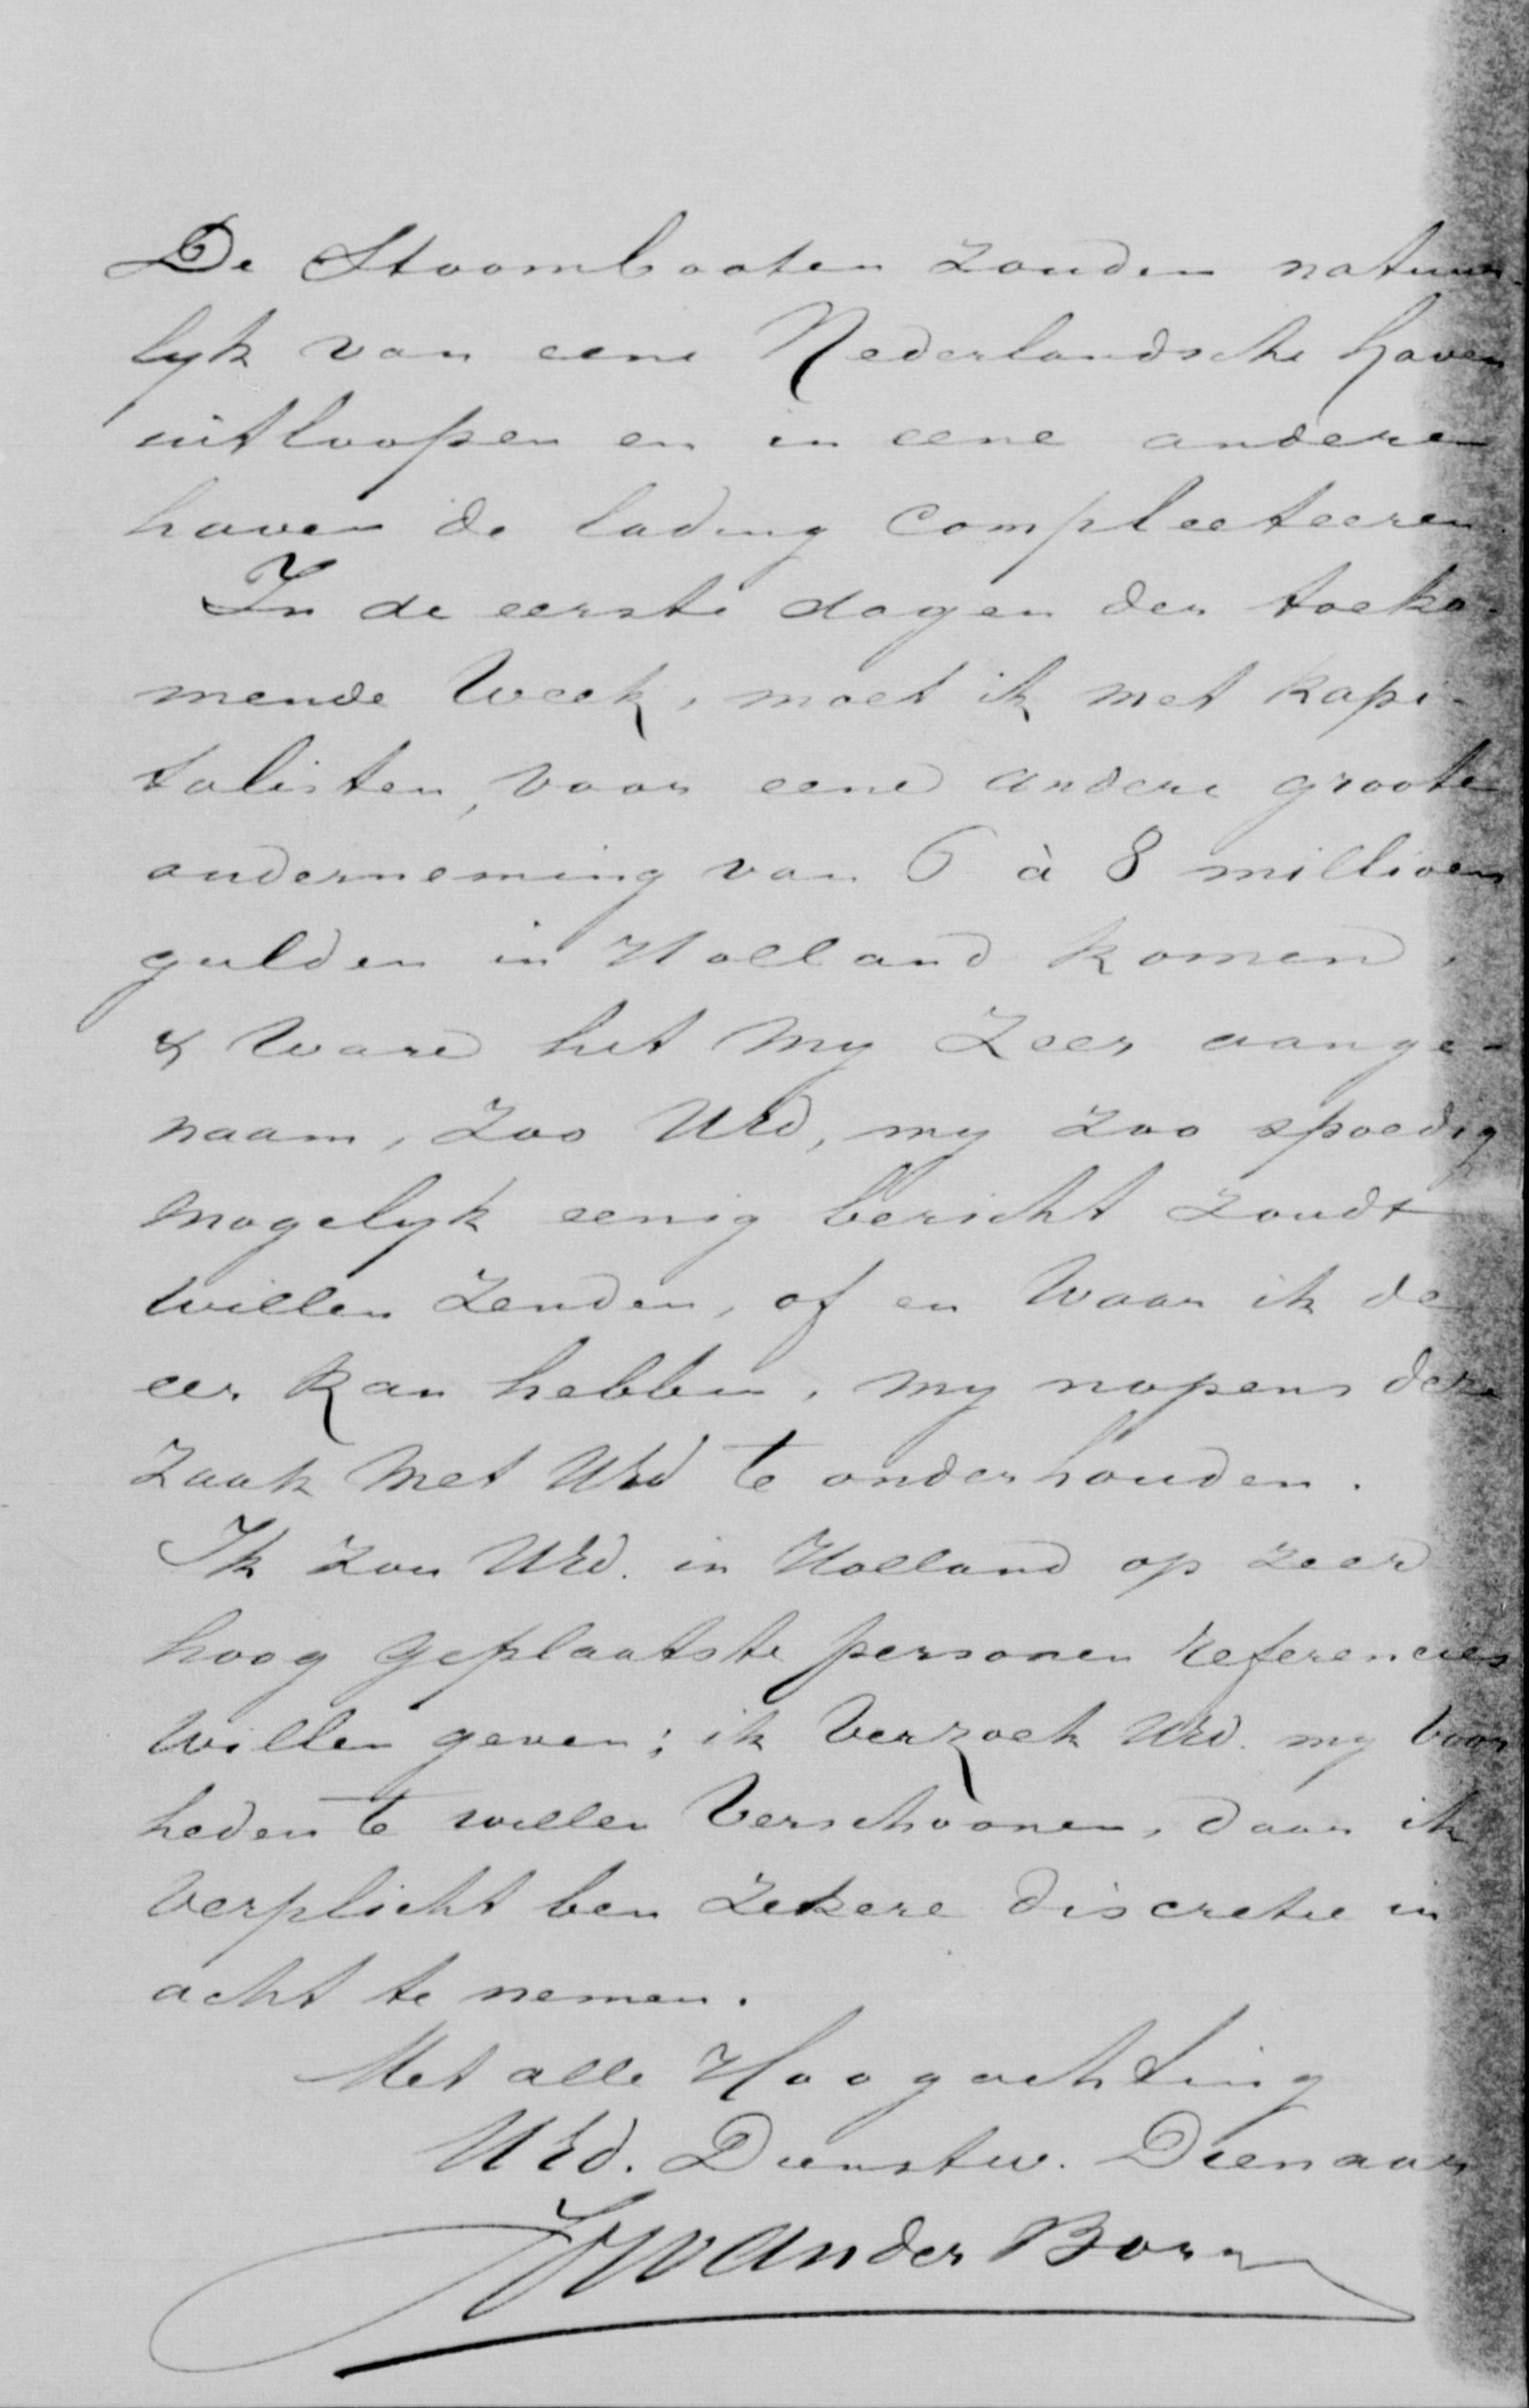 De Stoombooten zouden natuur-
lyk van eene Nederlandsche haven
uitloopen en in eene anderen
haven de lading compleeteeren.
In de eerste dagen der toeko-
mende Week, moet ik met kapi-
talisten, voor eene andere groote
onderneming van 6 à 8 millioen
gulden in Holland komen,
& Ware het my Zeer aange-
naam, Zoo UEd, my zoo spoedig
mogelyk eenig bericht zoudt
willen Zenden, of en Waar ik de
eer kan hebben, my nopens deze
Zaak Met UEd te onderhouden.
Ik zou UEd. in Holland op zeer
hoog geplaatste personen Referencies
Willen geven; ik Verzoek UEd. my voor
heden te willen Verschoonen, daar ik
Verplicht ben Zekere discretie in
acht te nemen.
Met alle Hoogachting
UEd. Dienstw. Dienaar
van der Born